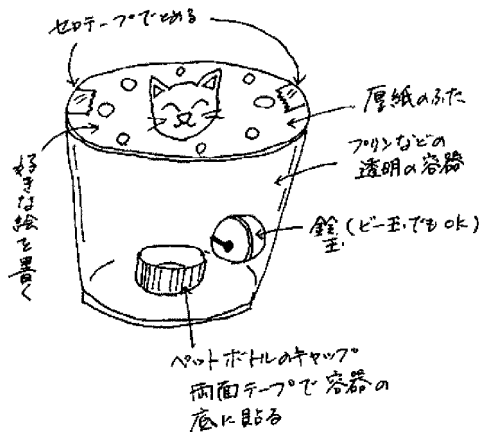 セロテープでとめる
厚紙のふた
プリンなどの
透明の容器
好きな絵を書く
鈴(ビー玉でもOK)
玉
ペットボトルのキャップ
両面テープで容器の
底に貼る